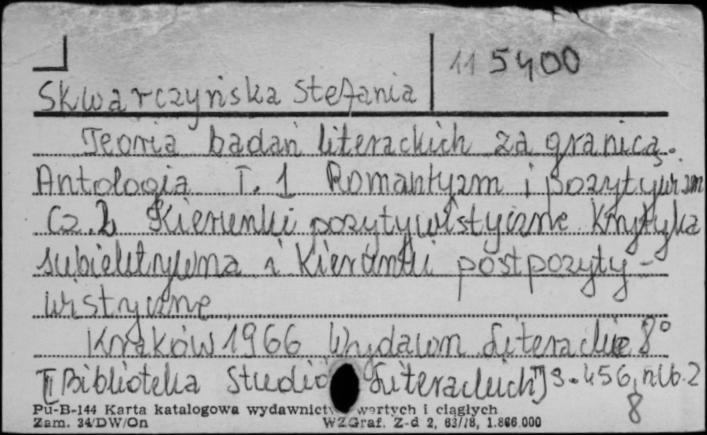 11 5400
Skwarczyńska Stefania
Teoria badań literackich za granicą.
Antologia T. 1 Romantyzm i pozytywizm
Cz. 2 Kierunki pozytywistyczne Krytyka
subiektywna i Kierunki postpozyty-
wistyczne
Kraków 1966 Wydawn Literackie 8°
[Biblioteka Studiów Literackich] s. 456, nlb. 2
8
Pu-B-144 Karta katalogowa wydawnictw zwartych i ciągłych
Zam. 34/DW/On WZGraf. Z-d 2, 63/78, 1.866.000